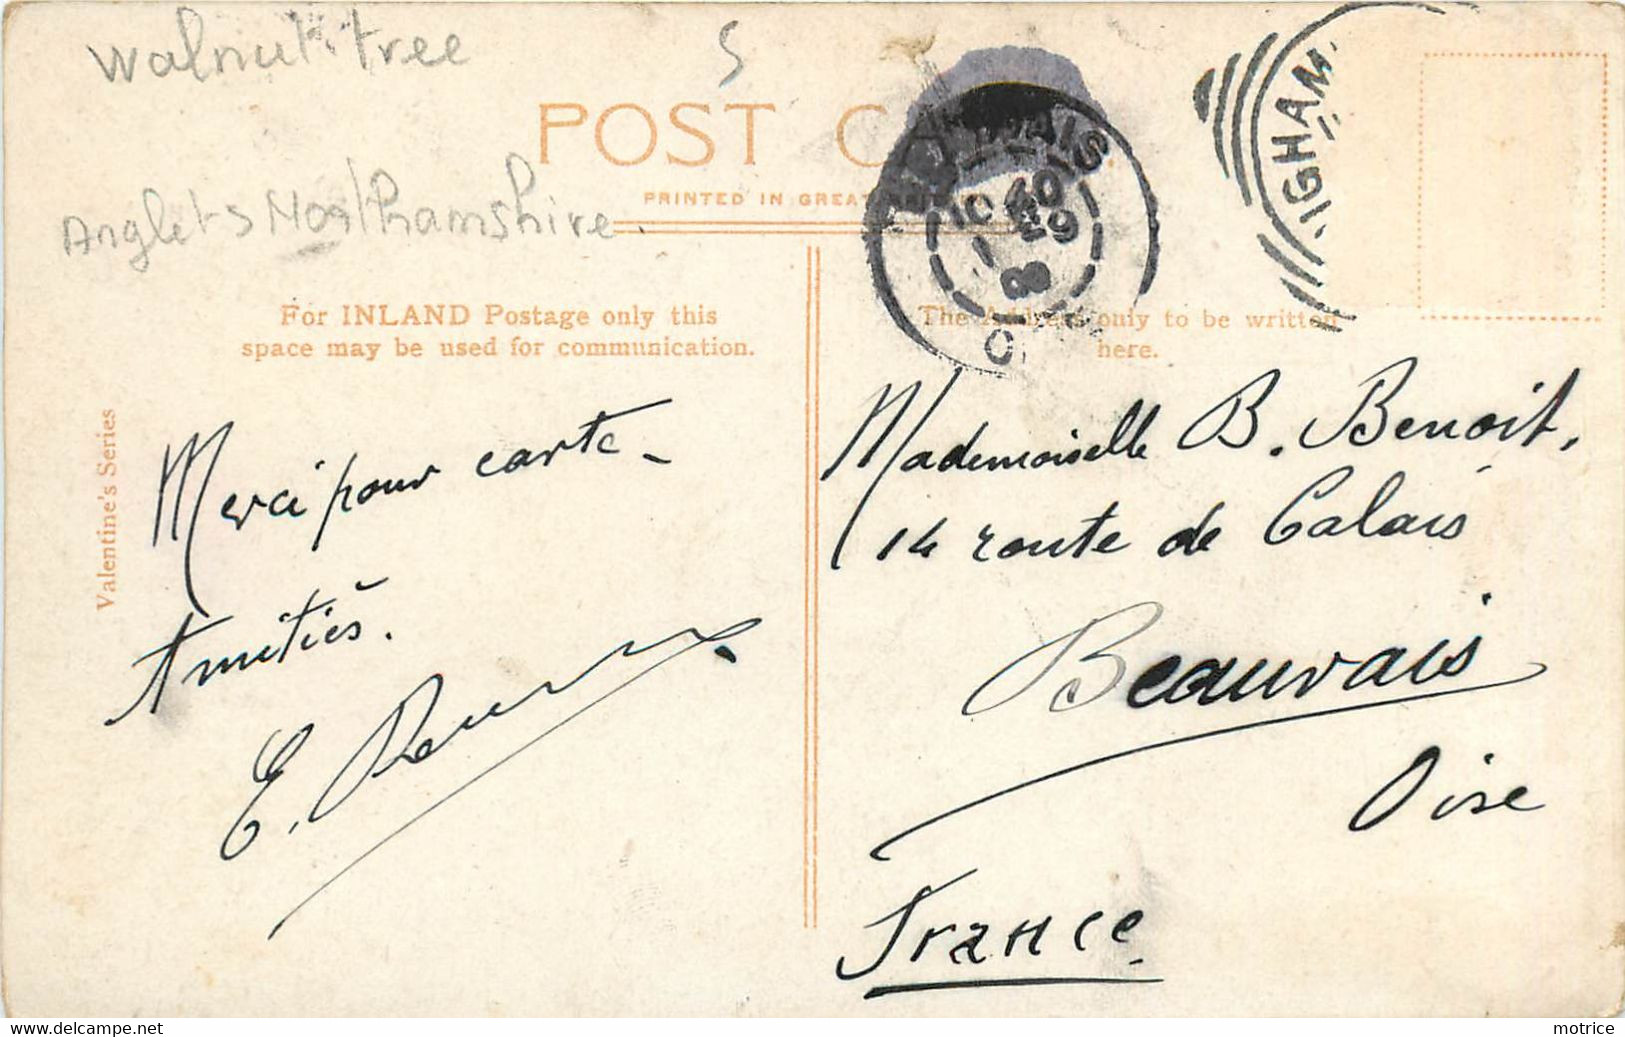 Walnut tree
5
POST CA
PRINTED IN GREAT
Anglet s Northamshire.
For INLAND Postage only this
space may be used for communication.
The Address only to be written
here.
Valentine's Series
IGHAM
Merci pour carte
Amitiés.
E.
Mademoiselle B. Benoit,
14 route de Calais
Beauvais
Oise
France
www.delcampe.net
motrice